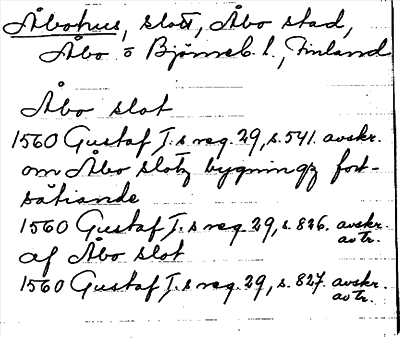 Åbohus, slott, Åbo stad,
Åbo o Björneb. l., Finland
Åbo slot
1560 Gustaf I.s reg. 29, s. 541. avskr.
om Åbo slotz bygningz fort-
sätiande
1560 Gustaf I.s reg. 29, s. 826. avskr.
avtr.
af Åbo slot
1560 Gustaf I.s reg. 29, s. 827. avskr.
avtr.